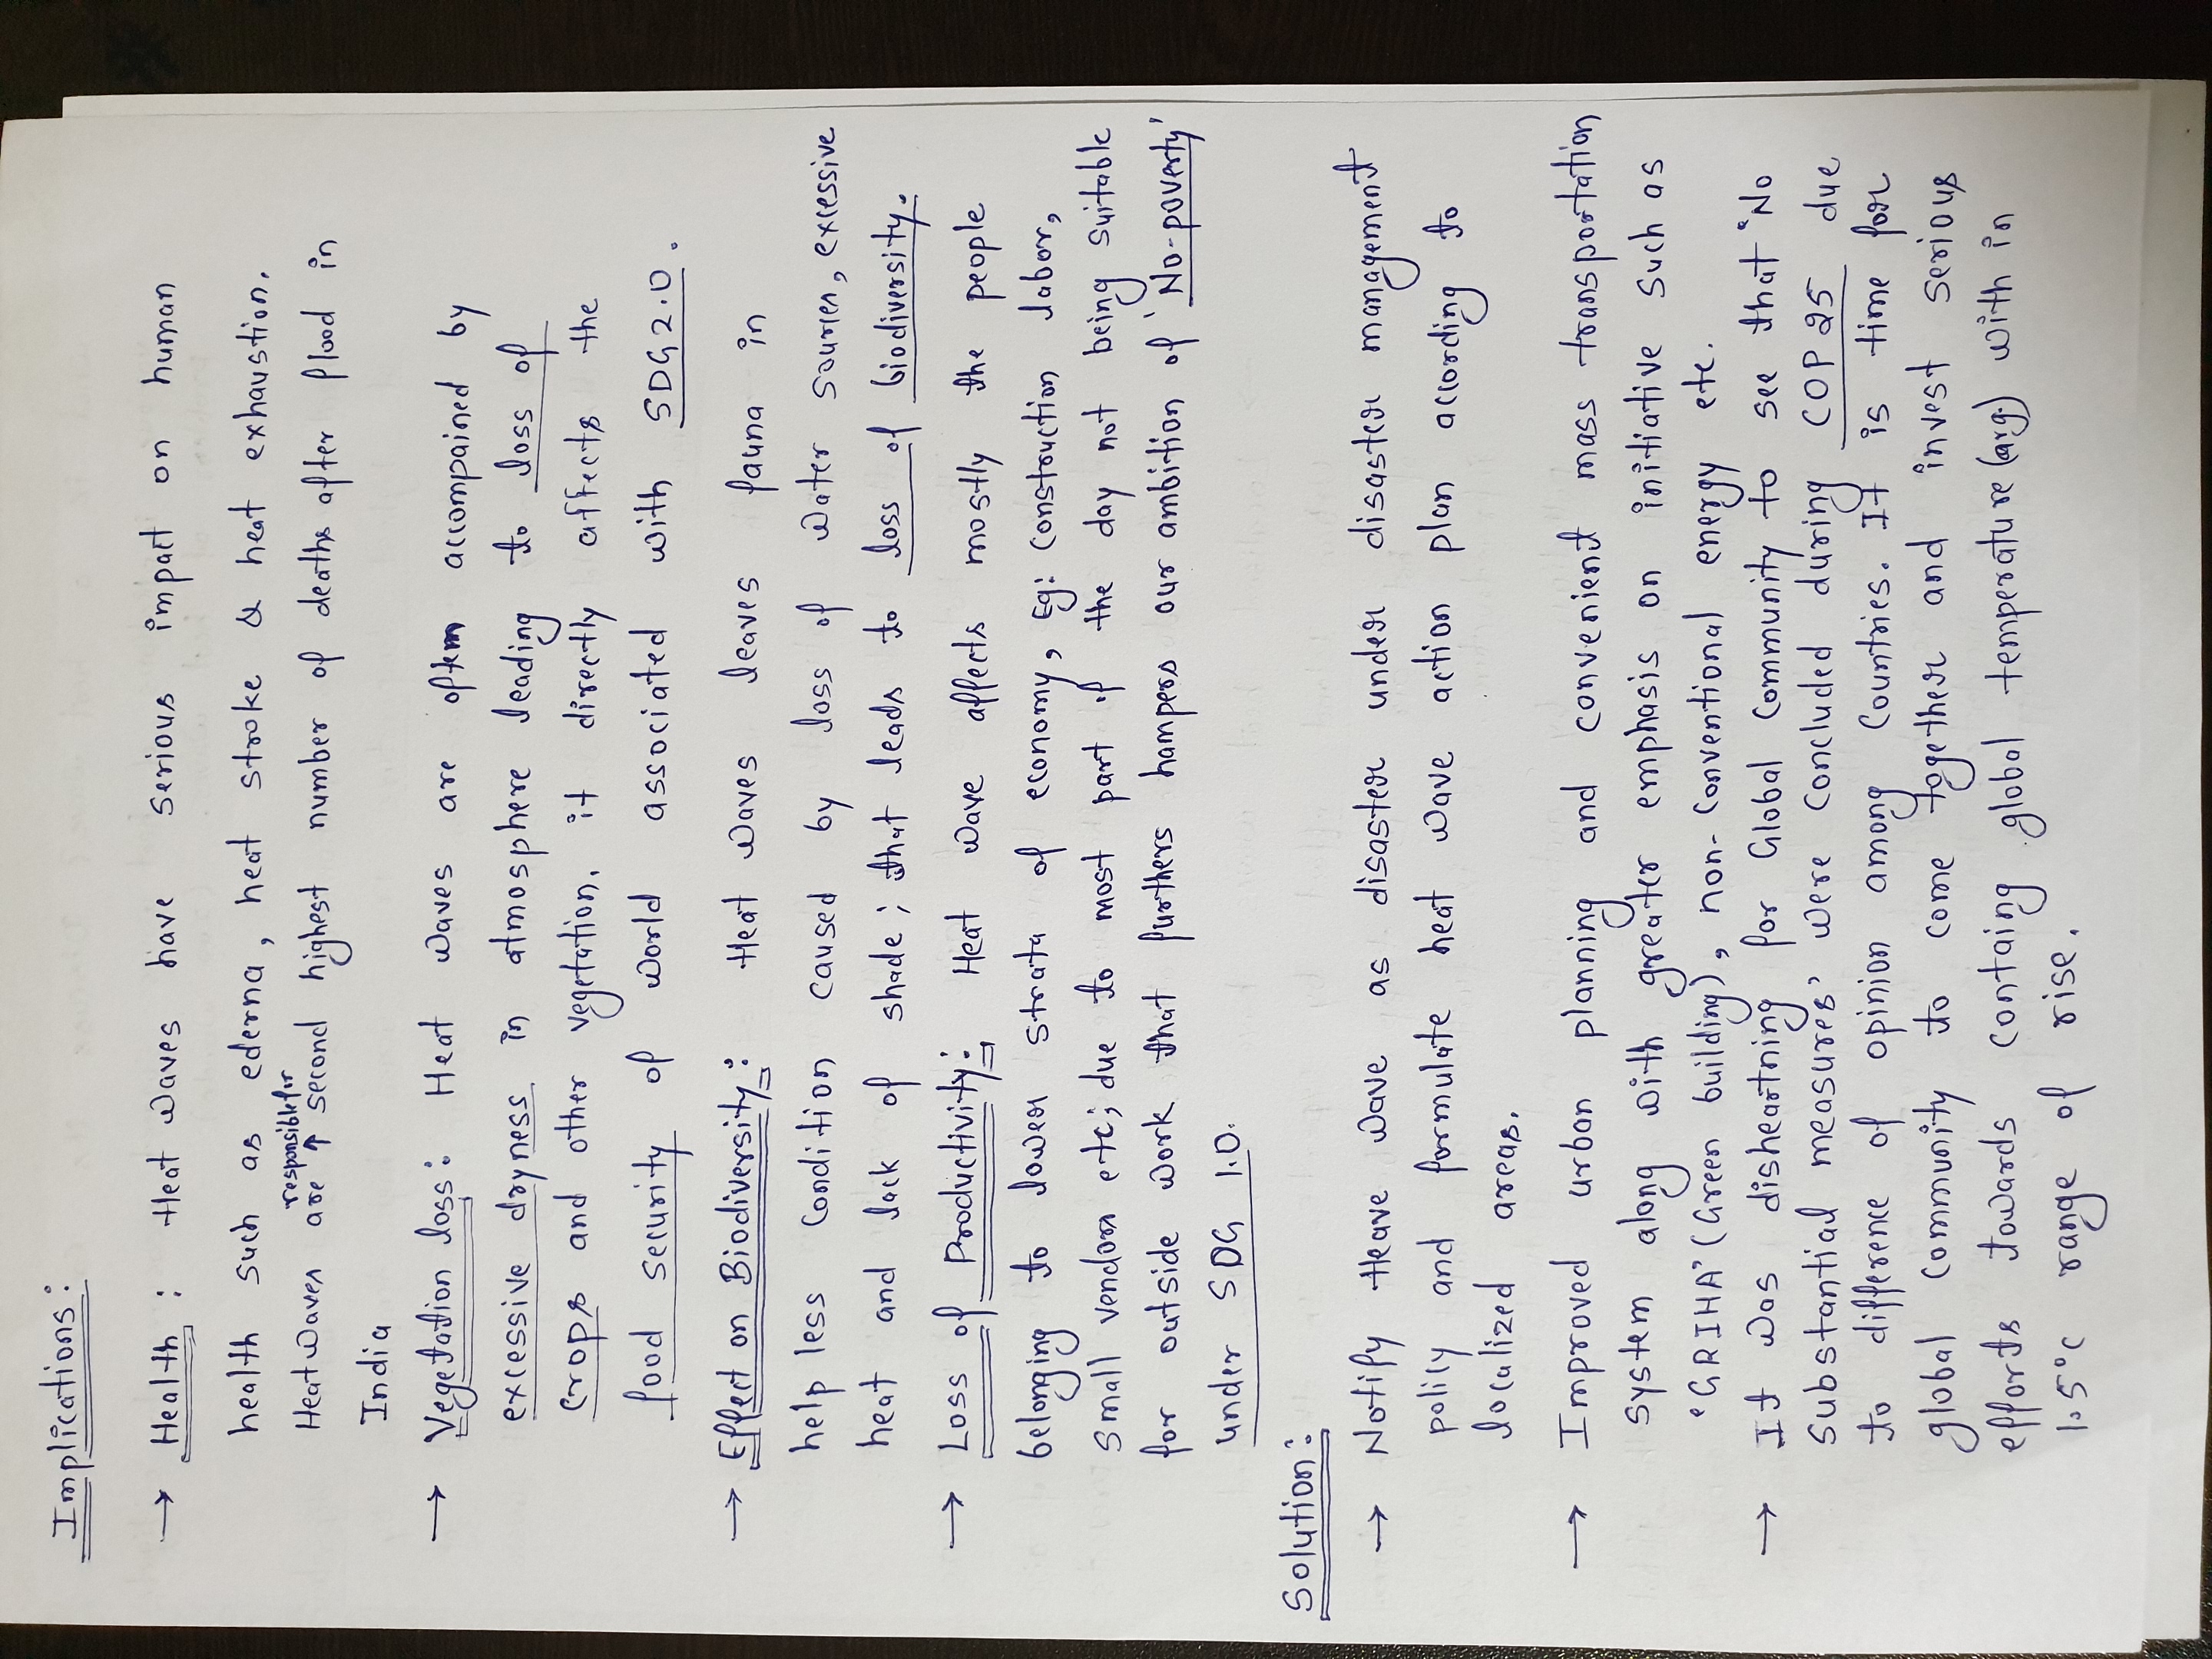 Implications:
→ Health: Heat waves have serious impact on human
health such as ederna, heat stroke & heat exhaustion.
Heatwaves are responsible for second highest number of deaths after flood in
India
→ Vegetation loss: Heat waves are often accompained by
excessive dryness in atmosphere leading to loss of
crops and other vegetation. it directly affects the
food security of world associated with SDG 2.0.
→ Effect on Biodiversity: Heat waves leaves fauna in
help less condition caused by loss of water sources, excessive
heat and lack of shade; that leads to loss of biodiversity.
→ Loss of Productivity: Heat wave affects mostly the people
belonging to lower strata of economy, Eg: construction labor,
small vendors etc; due to most part if the day not being suitable
for outside work that furthers hampers our ambition of 'No-poverty'
under SDG 1.0.
Solution:
→ Notify Heave wave as disaster under disaster management
policy and formulate heat wave action plan according to
localized areas.
→ Improved urban planning and convenient mass transportation
system along with greater emphasis on initiative such as
'GRIHA' (Green building), non-conventional energy etc.
→ It was disheartning for Global Community to see that 'No
substantial measures' were concluded during COP 25 due
to difference of opinion among Countries. It is time for
global community to come together and invest serious
efforts towards containg global temperature (avg.) with in
1.5°c range of rise.